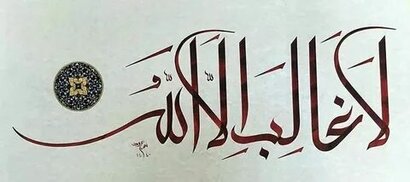 لَا غَالِبَ إِلَّا اللَّهُ